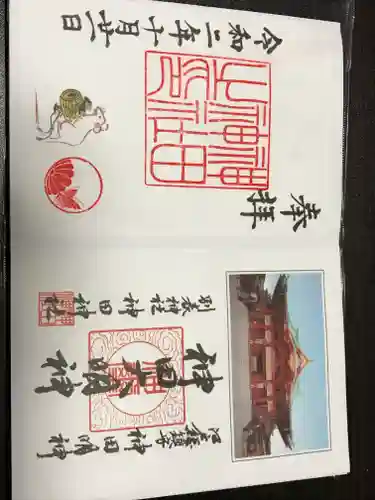 江戸総鎮守 神田明神
神田大明神
別表神社 神田神社
奉拝
神田神社之印
令和二年十月廿一日